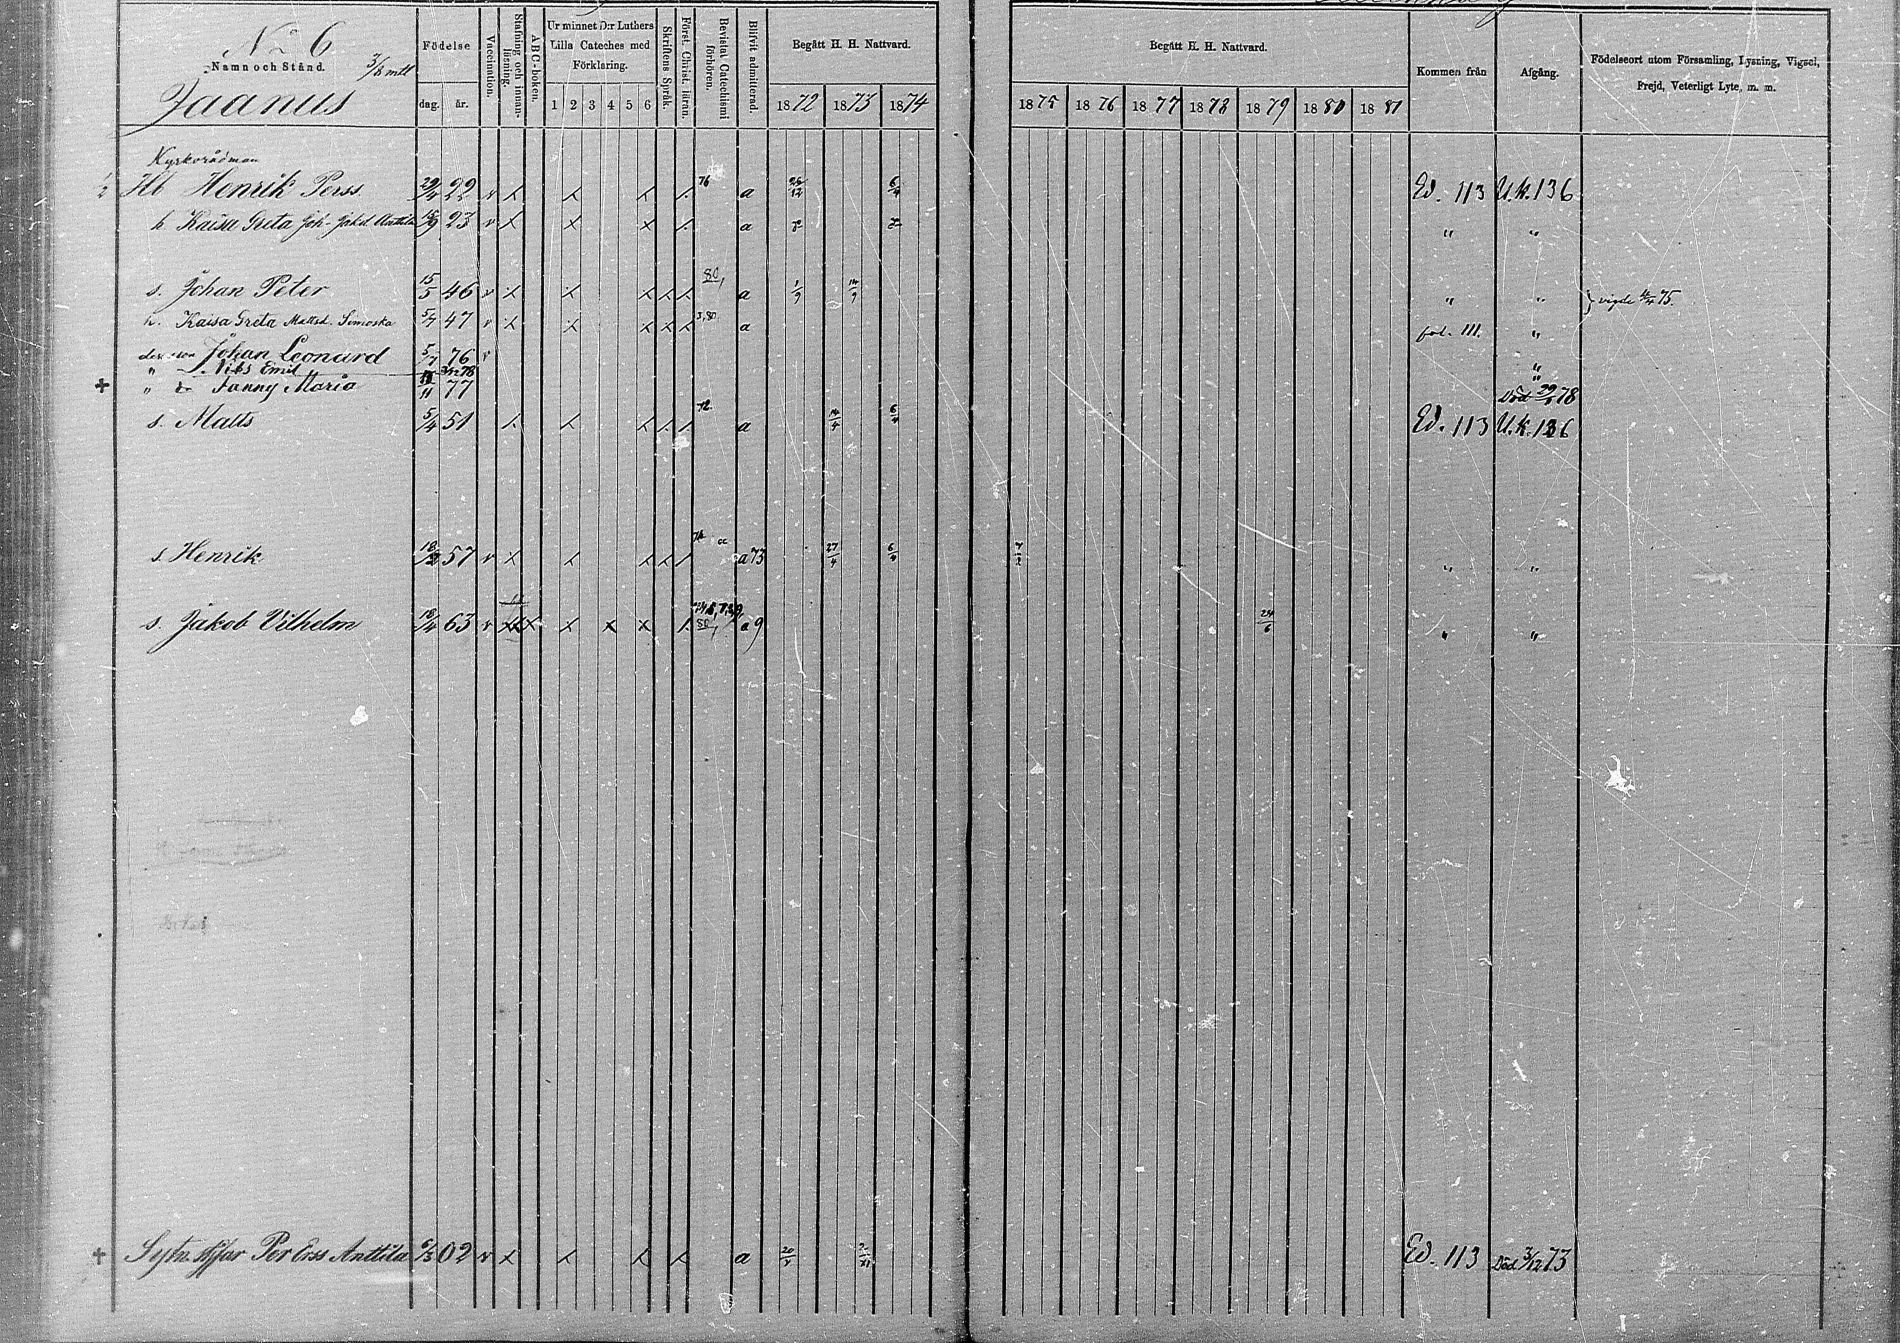 No 6
Namn och Stånd.
3/8 mtl
Jaanus
Födelse
dag. år.
Vaccination.
Stafning och innanläsning.
ABC-boken.
Ur minnet D:r Luthers Lilla Cateches med Förklaring.
1 2 3 4 5 6
Skriftens Språk.
Först. Christ. läran.
Bevistat Catechismi förhören.
Blifvit admitterad.
Begått H. H. Nattvard.
1872 1873 1874
Begått H. H. Nattvard.
1875 1876 1877 1878 1879 1880 1881
Kommen från
Afgång.
Födelseort utom Församling, Lysning, Vigsel, Frejd, Veterligt Lyte, m. m.
Kyrkorådman
1/2 Hb Henrik Perss 29/4 22 v x x x x 76 a 6/4 Ed. 113 U.k. 136
h Kaisa Greta Joh. Jakd Anttila 15/9 23 v x x x x a " "
s. Johan Peter 15/5 46 v x x x x x 80 a 1/9 14/9 " " } vigde 75.
h. Kaisa Greta Mattsd. Simoska 5/7 47 v x x x x x 3,80 a fol. 111. "
deras son Johan Leonard 5/7 76 v "
" s. Nils Emil 78 "
+ " d Fanny Maria 11 77 Död 78
s. Matts 5/4 51 x x x x x 72 a 14/4 6/4 Ed. 113 U.k. 136
s Henrik 18/2 57 v x x x x x a 73 27/4 6/4 7/2 " "
s. Jakob Vilhelm 18/4 63 v x x x x x x 80 a 9 24/6 " "
+ Sytn. Per Erss Anttila 6/3 02 v x x x x a 20/4 Ed. 113 Död 3/12 73